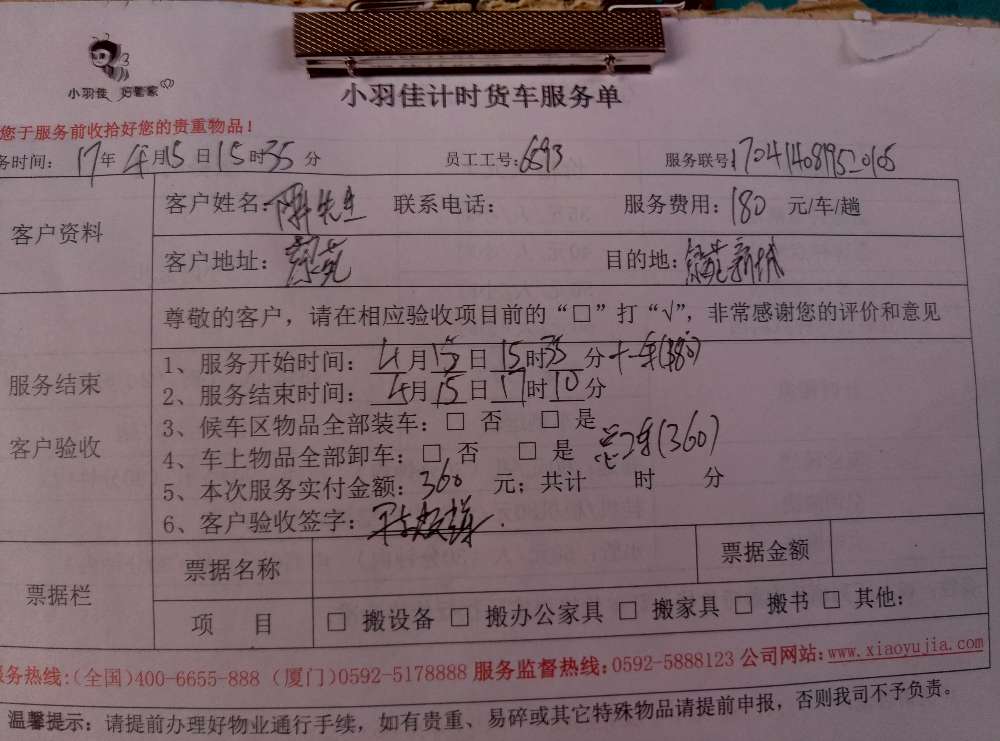 小羽佳 好管家
小羽佳计时货车服务单
您于服务前收拾好您的贵重物品!
务时间: 17年4月15日15时35分 员工工号: 6593 服务联号
客户资料
客户姓名: 陈先生 联系电话: 服务费用: 180 元/车/趟
客户地址: 目的地: 新城
尊敬的客户，请在相应验收项目前的“□”打“√”，非常感谢您的评价和意见
服务结束
客户验收
1、服务开始时间: 4月15日15时35分
2、服务结束时间: 4月15日17时10分
3、候车区物品全部装车: □ 否 □ 是
4、车上物品全部卸车: □ 否 □ 是 总2车(360)
5、本次服务实付金额: 360 元; 共计 时 分
6、客户验收签字:
票据栏
票据名称 票据金额
项 目 □ 搬设备 □ 搬办公家具 □ 搬家具 □ 搬书 □ 其他:
服务热线:(全国)400-6655-888 (厦门)0592-5178888 服务监督热线:0592-5888123 公司网站:www.xiaoyujia.com
温馨提示: 请提前办理好物业通行手续，如有贵重、易碎或其它特殊物品请提前申报，否则我司不予负责。